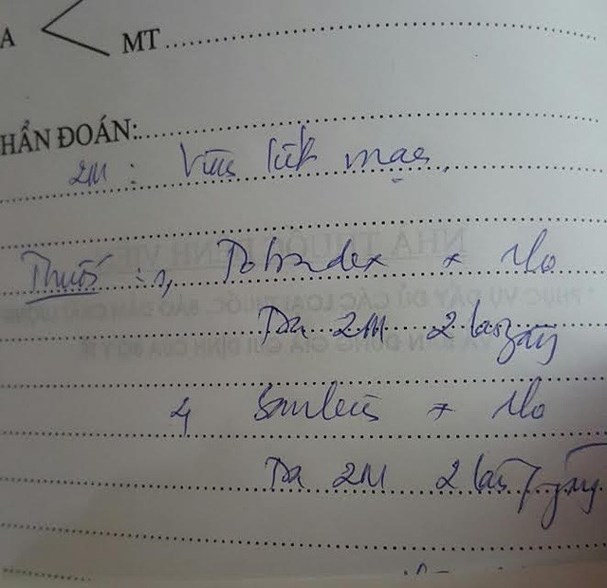 A
MT
HẨN ĐOÁN:
2M: Viêm kết mạc.
Thuốc: 1, Tobradex x 1lo
Tra 2M 2 lần/ngày
x 1lo
Tra 2M 2 lần/ngày
NHÀ THUỐC BỆNH VIỆN
* PHỤC VỤ ĐẦY ĐỦ CÁC LOẠI THUỐC, BẢO ĐẢM CHẤT LƯỢNG
BÁN ĐÚNG GIÁ QUI ĐỊNH CỦA BỘ Y TẾ